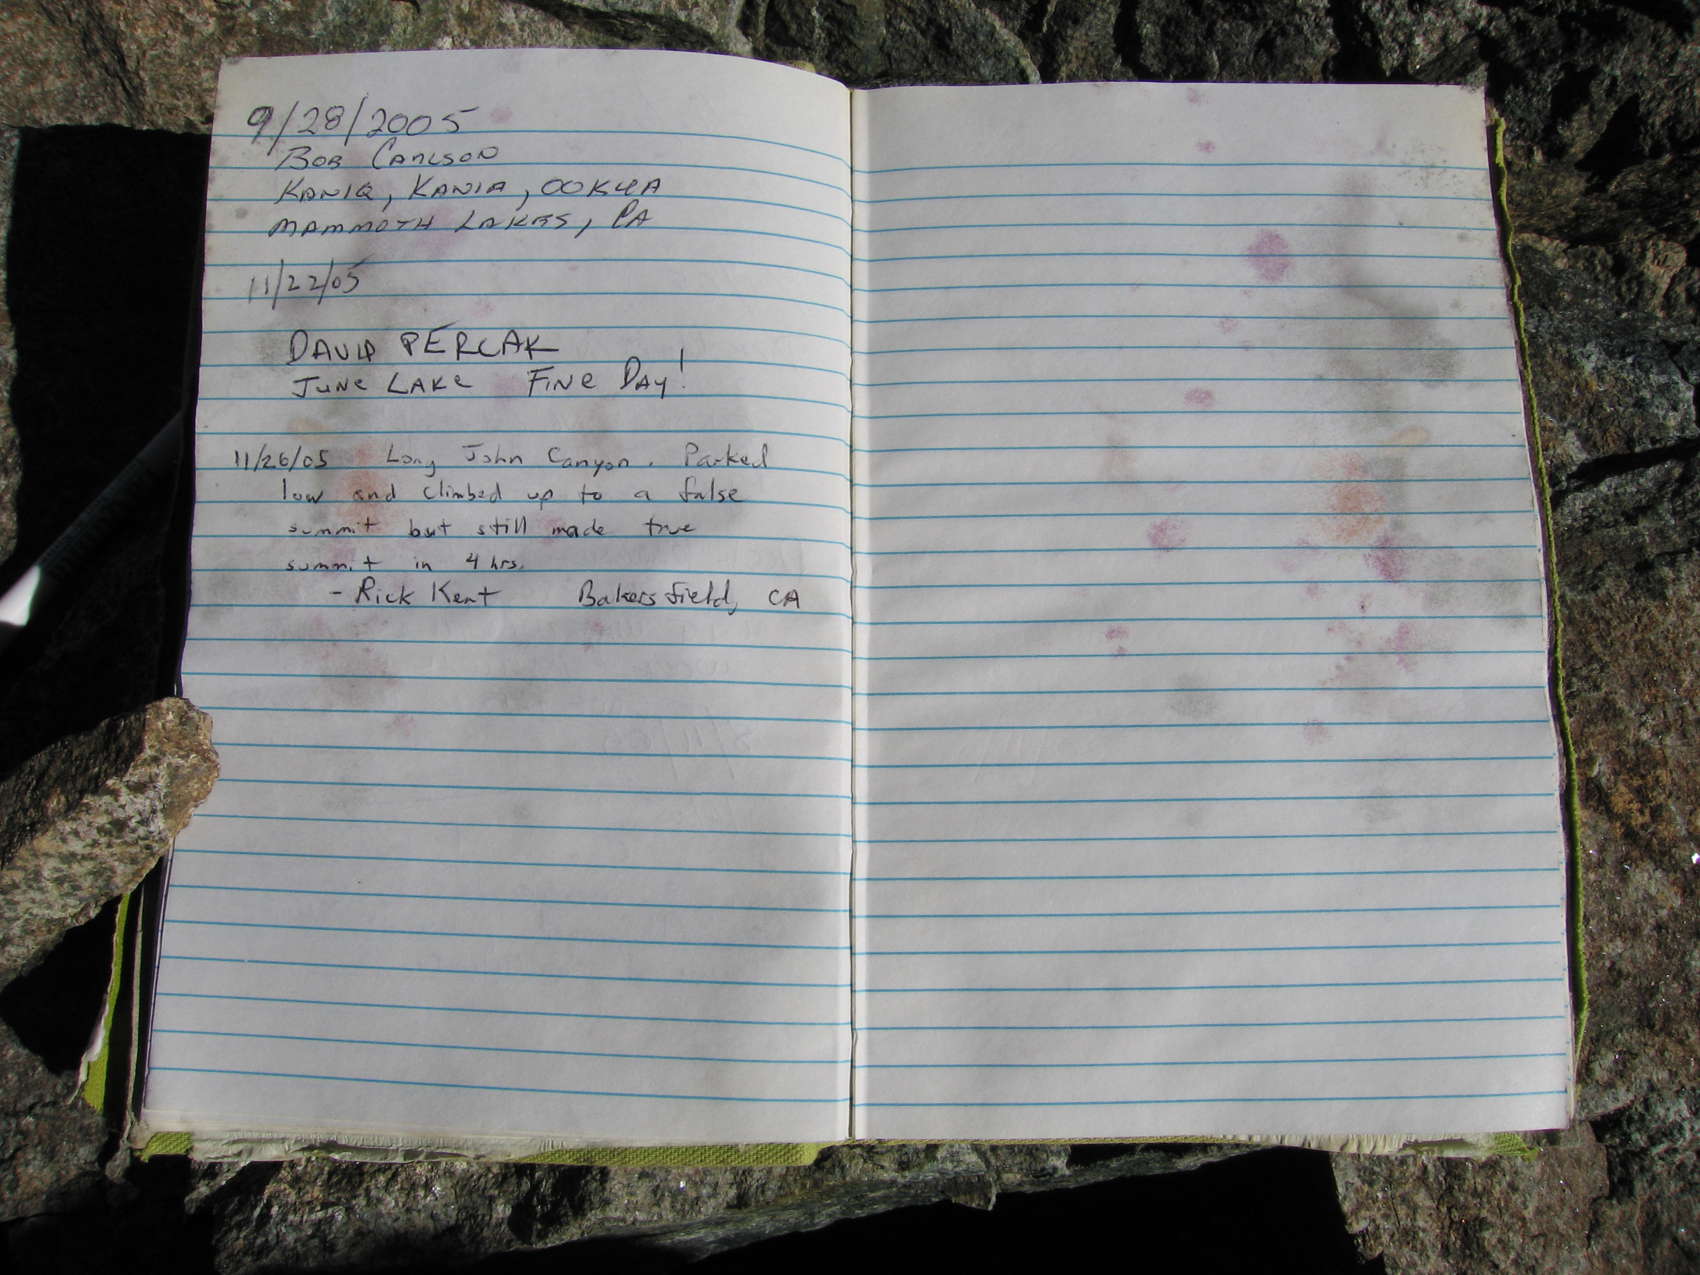 9/28/2005
BOB CARLSON
KANIQ, KANIA, OOK4A
MAMMOTH LAKES, PA
11/22/05
DAVID PERCAK
JUNE LAKE FINE DAY!
11/26/05 Long John Canyon. Parked
low and climbed up to a false
summit but still made true
summit in 4 hrs.
- Rick Kent Bakersfield, CA